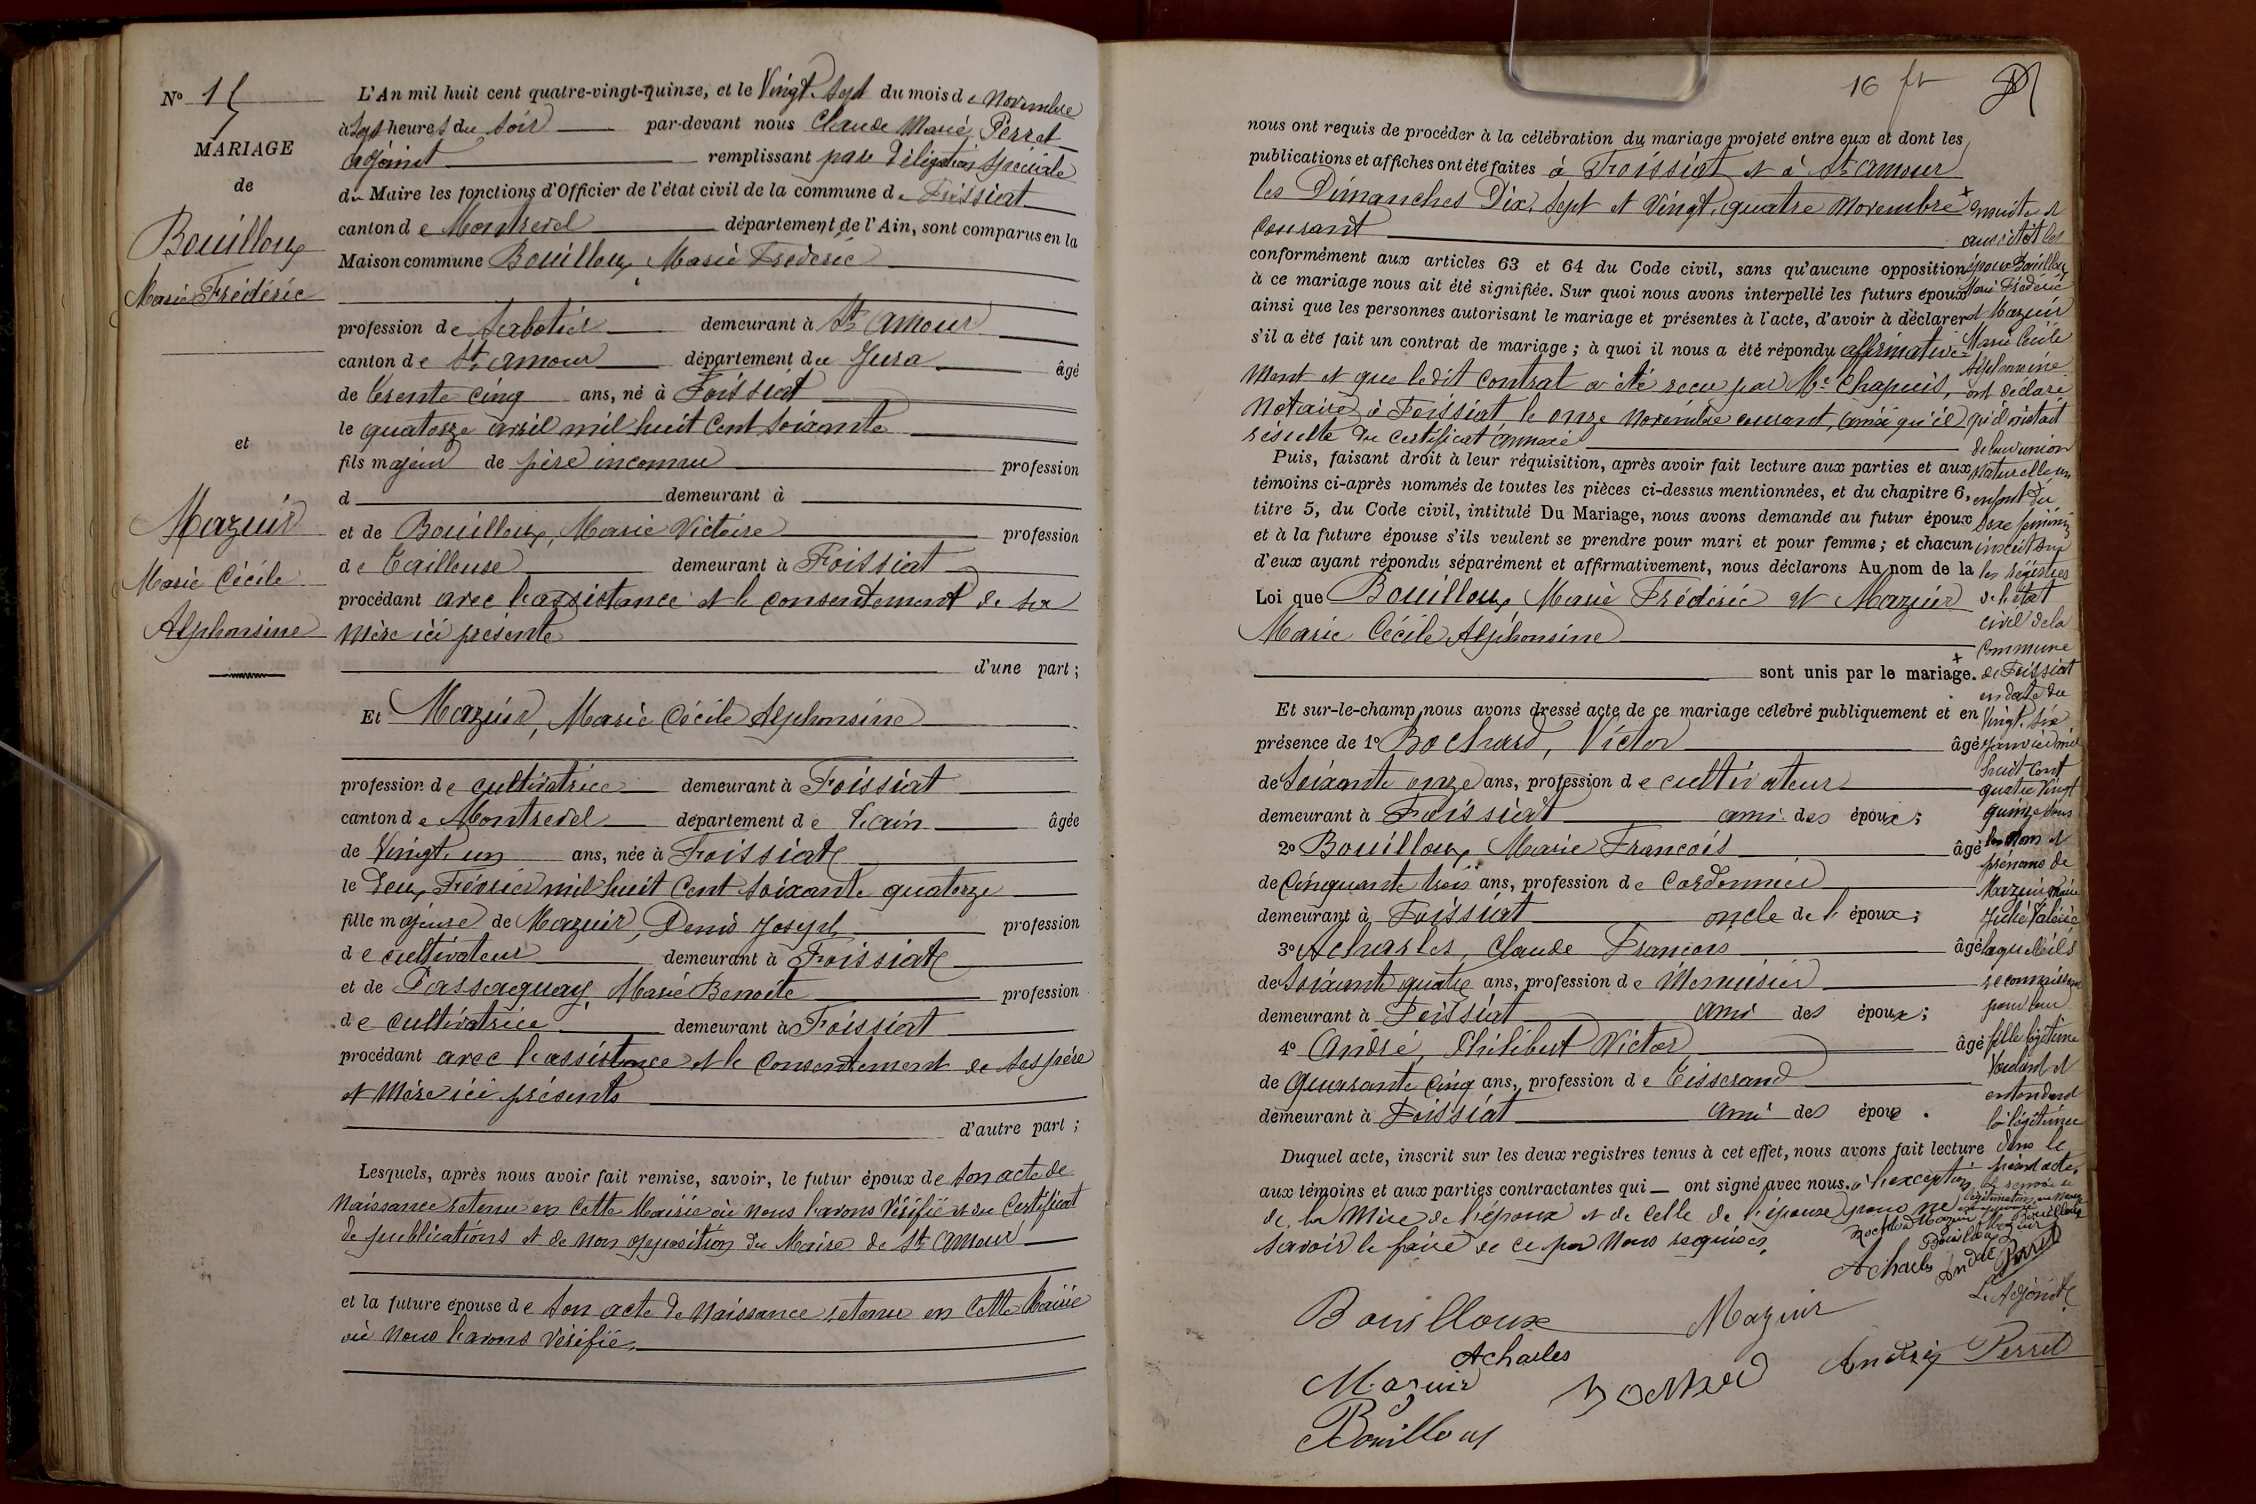 N° 15
MARIAGE
de
Bouilloux
Marie Frédéric
et
Mazuir
Marie Cécile
Alphonsine
L'An mil huit cent quatre-vingt-quinze, et le Vingt-Sept du mois de Novembre
à Sept heures du Soir par-devant nous Claude Marie Perret
adjoint remplissant par Délégation Spéciale
du Maire les fonctions d'Officier de l'état civil de la commune de Foissiat
canton de Montrevel département de l'Ain, sont comparus en la
Maison commune Bouilloux, Marie Frédéric
profession de Sabotier demeurant à St Amour
canton de St Amour département du Jura âgé
de trente cinq ans, né à Foissiat
le quatorze avril mil huit Cent Soixante
fils majeur de père inconnu profession
d demeurant à
et de Bouilloux, Marie Victoire profession
de Tailleuse demeurant à Foissiat
procédant avec l'assistance et le consentement de sa
Mère ici présente
d'une part ;
Et Mazuir, Marie Cécile Alphonsine
profession de cultivatrice demeurant à Foissiat
canton de Montrevel département de l'ain âgée
de Vingt-un ans, née à Foissiat
le Deux Février mil huit Cent Soixante quatorze
fille majeure de Mazuir, Denis Joseph profession
de cultivateur demeurant à Foissiat
et de Passaquay, Marie Benoite profession
de cultivatrice demeurant à Foissiat
procédant avec l'assistance et le Consentement de Ses père
et Mère ici présents
d'autre part ;
Lesquels, après nous avoir fait remise, savoir, le futur époux de Son acte de
Naissance retenu en Cette Mairie où nous l'avons Vérifié et du Certificat
de publications et de non opposition du Maire de St Amour
et la future épouse de Son acte de Naissance retenu en Cette Mairie
où Nous l'avons Vérifié.
16
nous ont requis de procéder à la célébration du mariage projeté entre eux et dont les
publications et affiches ont été faites à Foissiat et à St Amour
les Dimanches Dix-Sept et Vingt-quatre Novembre
Courant
conformément aux articles 63 et 64 du Code civil, sans qu'aucune opposition
à ce mariage nous ait été signifiée. Sur quoi nous avons interpellé les futurs époux
ainsi que les personnes autorisant le mariage et présentes à l'acte, d'avoir à déclarer
s'il a été fait un contrat de mariage ; à quoi il nous a été répondu affirmative-
ment et que ledit Contrat a été reçu par Me Chapuis,
Notaire à Foissiat le onze Novembre courant, ainsi qu'il
résulte du certificat annexé
Puis, faisant droit à leur réquisition, après avoir fait lecture aux parties et aux
témoins ci-après nommés de toutes les pièces ci-dessus mentionnées, et du chapitre 6,
titre 5, du Code civil, intitulé Du Mariage, nous avons demandé au futur époux
et à la future épouse s'ils veulent se prendre pour mari et pour femme ; et chacun
d'eux ayant répondu séparément et affirmativement, nous déclarons Au nom de la
Loi que Bouilloux, Marie Frédéric et Mazuir
Marie Cécile Alphonsine
sont unis par le mariage.
Et sur-le-champ nous avons dressé acte de ce mariage célébré publiquement et en
présence de 1° Bochard, Victor âgé
de Soixante onze ans, profession de cultivateur
demeurant à Foissiat ami des époux ;
2° Bouilloux, Marie François âgé
de Cinquante trois ans, profession de Cordonnier
demeurant à Foissiat oncle de l'époux ;
3° Acharles, Claude François âgé
de Soixante quatre ans, profession de Menuisier
demeurant à Foissiat ami des époux ;
4° André, Philibert Victor âgé
de Quarante Cinq ans, profession de Tisserand
demeurant à Foissiat ami des époux .
Duquel acte, inscrit sur les deux registres tenus à cet effet, nous avons fait lecture
aux témoins et aux parties contractantes qui ont signé avec nous. à l'exception
de la Mère de l'époux et de celle de l'épouse pour ne
Savoir le faire de ce par Nous requises.
ensuite et
aussitôt les
époux Bouilloux
Marie Frédéric
et Mazuir
Marie Cécile
Alphonsine
ont déclaré
qu'il existait
de leur union
Naturelle un
enfant du
Sexe féminin
inscrit sur
les registres
de l'état
civil de la
Commune
de Foissiat
en date du
Vingt-Six
Janvier mil
huit Cent
quatre Vingt
quinze sous
les nom et
prénoms de
Mazuir Marie
Julie Valérie
laquelle ils
reconnaissent
pour leur
fille légitime
Voulant et
entendant
la légitimer
dans le
présent acte.
Bochard Mazuir Mazuir Bouilloux
Bouilloux
Acharles André Perret
L'Adjoint
Bouilloux Mazuir
Acharles
Mazuir Bochard André Perret
Bouilloux